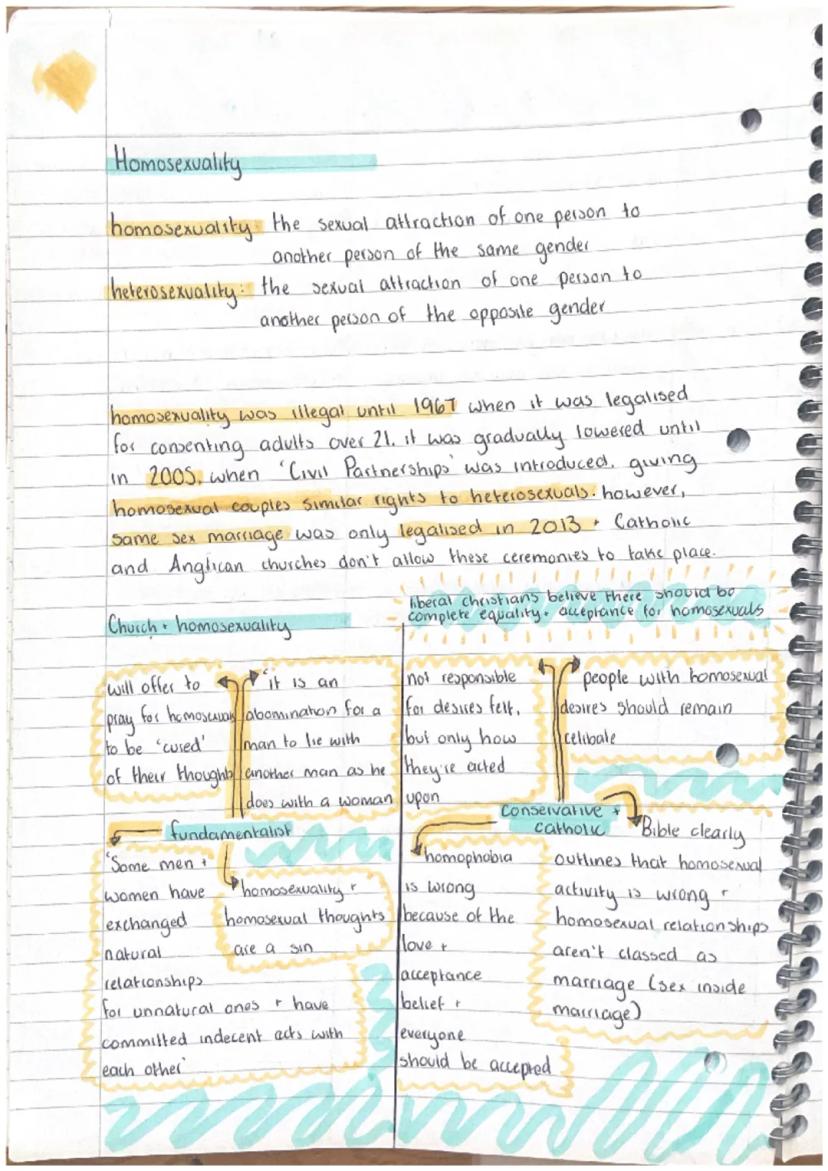 Homosexuality
homosexuality: the sexual attraction of one person to
another person of the same gender
heterosexuality: the sexual attraction of one person to
another person of the opposite gender
homosexuality was illegal until 1967 when it was legalised
for consenting adults over 21. it was gradually lowered until
in 2005, when 'Civil Partnerships' was introduced, giving
homosexual couples similar rights to heterosexuals. however,
same sex marriage was only legalised in 2013 + Catholic
and Anglican churches don't allow these ceremonies to take place.
liberal christians believe there should be
complete equality + acceptance for homosexuals
Church + homosexuality
will offer to
pray for homosexuals
to be 'cured'
of their thoughts
'it is an
abomination for a
man to lie with
another man as he
does with a woman
fundamentalist
'Some men +
women have
exchanged
natural
relationships
for unnatural ones + have
committed indecent acts with
each other'
homosexuality +
homosexual thoughts
are a sin
not responsible
for desires felt,
but only how
they're acted
upon
people with homosexual
desires should remain
celibate
conservative +
catholic
homophobia
is wrong
because of the
love +
acceptance
belief +
everyone
should be accepted
Bible clearly
outlines that homosexual
activity is wrong +
homosexual relationships
aren't classed as
marriage (sex inside
marriage)